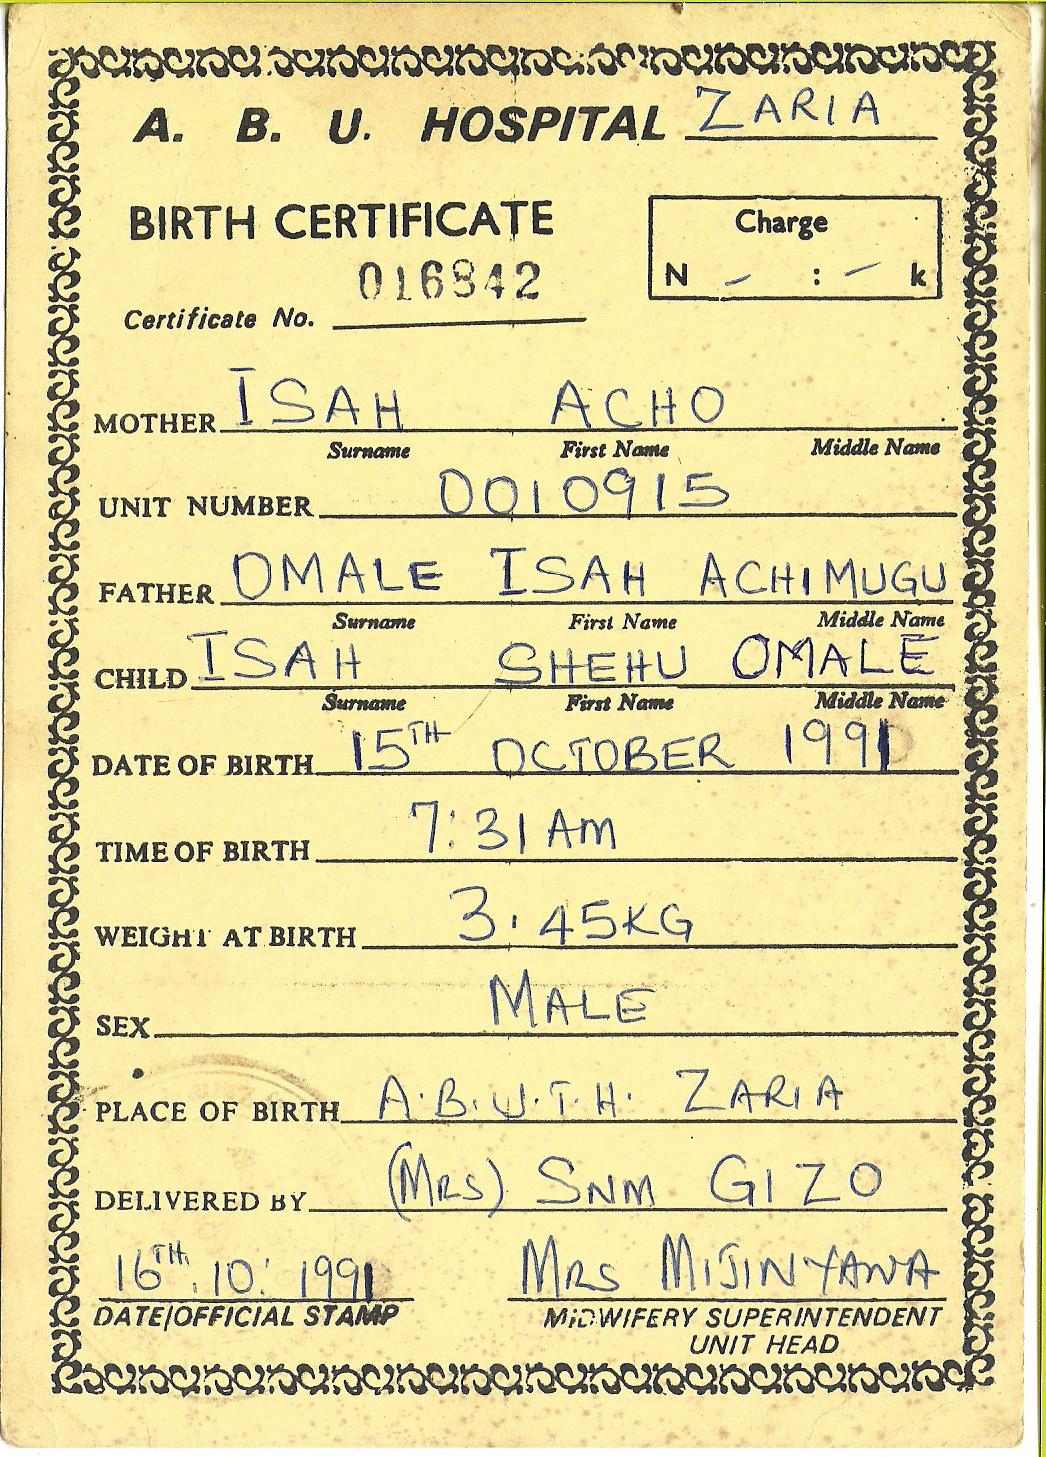 A. B. U. HOSPITAL ZARIA
BIRTH CERTIFICATE
Charge
N - : - k
016842
Certificate No.
MOTHER ISAH ACHO
Surname First Name Middle Name
UNIT NUMBER 0010915
FATHER OMALE ISAH ACHIMUGU
Surname First Name Middle Name
CHILD ISAH SHEHU OMALE
Surname First Name Middle Name
DATE OF BIRTH 15TH OCTOBER 1991
TIME OF BIRTH 7:31 AM
WEIGHT AT BIRTH 3.45KG
SEX MALE
PLACE OF BIRTH A.B.U.T.H. ZARIA
DELIVERED BY (MRS) SNM GIZO
16TH.10.1991 MRS MIJINYAWA
DATE/OFFICIAL STAMP MIDWIFERY SUPERINTENDENT
UNIT HEAD